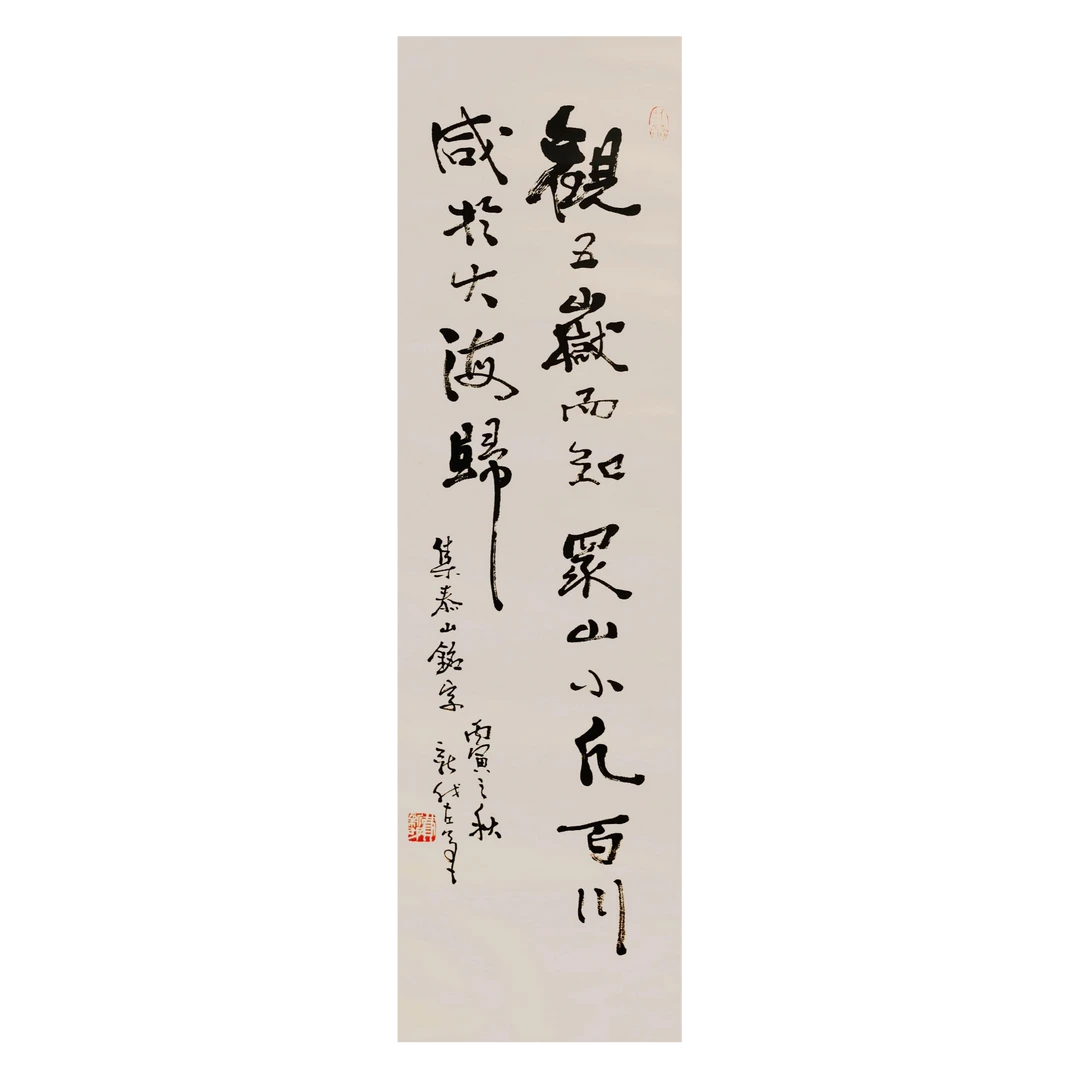 觀五嶽而知眾山小凡百川
咸於大海歸
集泰山銘字
丙寅之秋
新我左筆